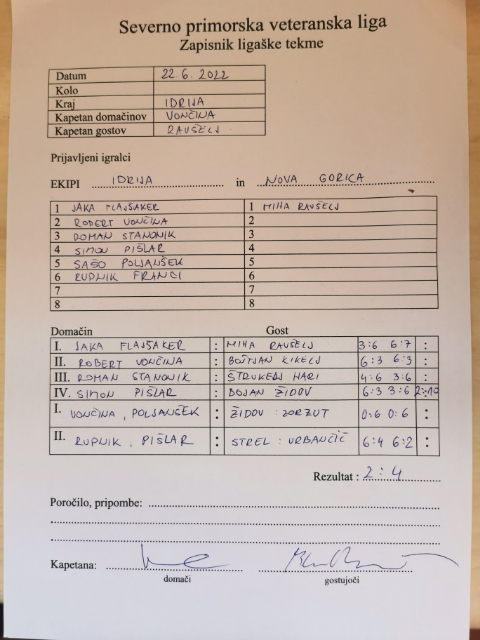 Severno primorska veteranska liga
Zapisnik ligaške tekme
Datum 22.6.2022
Kolo
Kraj IDRIJA
Kapetan domačinov VONČINA
Kapetan gostov RAVŠELJ
Prijavljeni igralci
EKIPI IDRIJA in NOVA GORICA
1 JAKA FLAJŠAKER 1 MIHA RAVŠELJ
2 ROBERT VONČINA 2
3 ROMAN STANONIK 3
4 SIMON PIŠLAR 4
5 SAŠO POLJANŠEK 5
6 RUPNIK FRANCI 6
7 7
8 8
Domačin Gost
I. JAKA FLAJŠAKER : MIHA RAVŠELJ 3:6 6:7 :
II. ROBERT VONČINA : BOŠTJAN KIKELJ 6:3 6:3 :
III. ROMAN STANONIK : ŠTRUKELJ HARI 4:6 3:6 :
IV. SIMON PIŠLAR : BOJAN ŽIDOV 6:3 3:6 2:10
I. VONČINA, POLJANŠEK : ŽIDOV : ZORZUT 0:6 0:6 :
II. RUPNIK, PIŠLAR : STREL : URBANČIČ 6:4 6:2 :
Rezultat : 2:4
Poročilo, pripombe:
Kapetana:
domači gostujoči